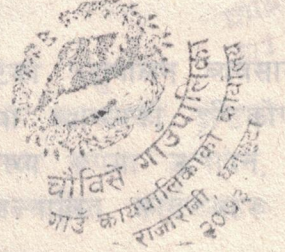 चौविसे गाउँपालिका
गाउँ कार्यपालिकाको कार्यालय
राजारानी, धनकुटा
२०७३